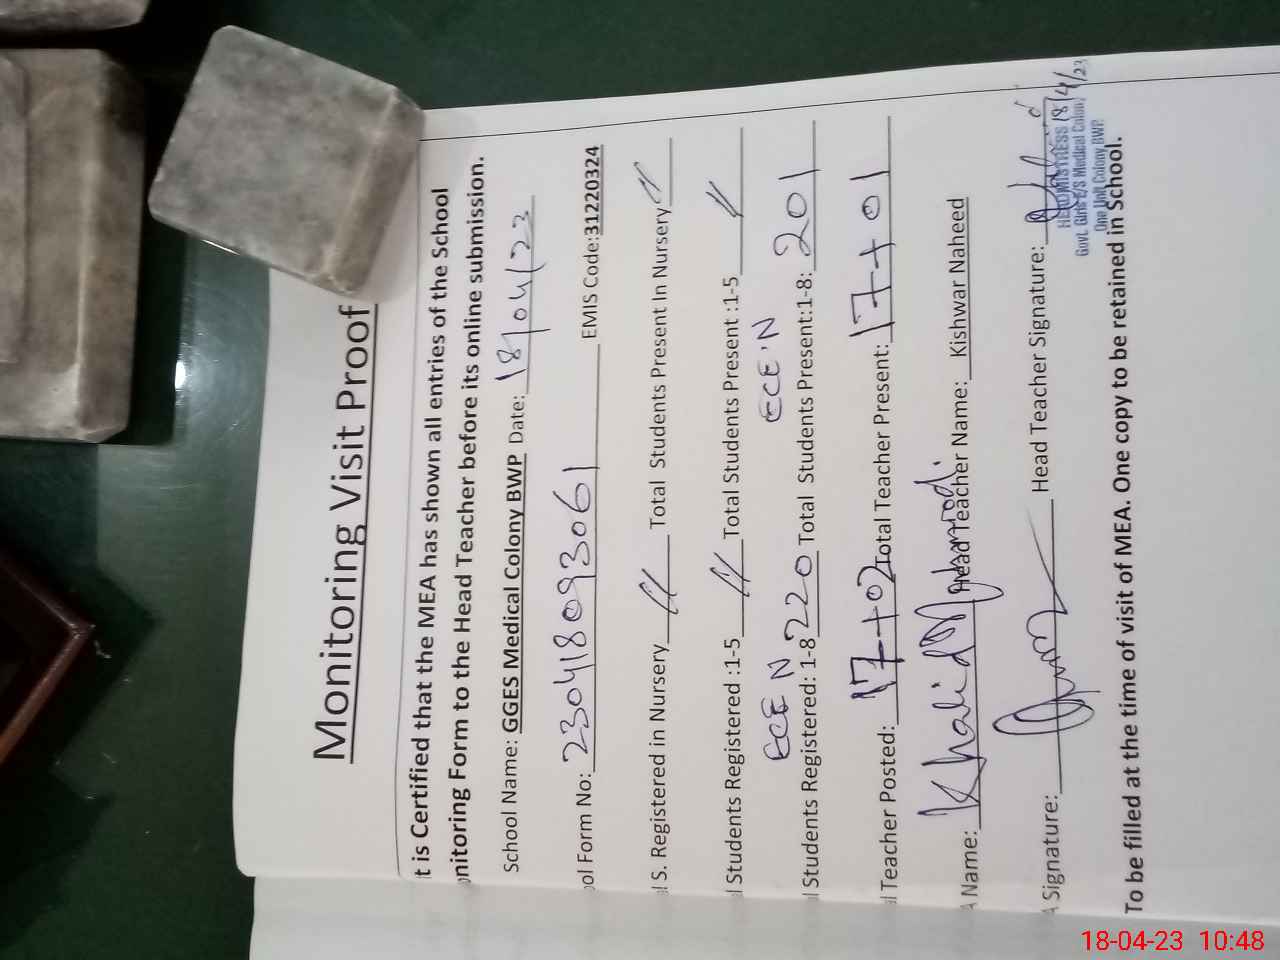 Monitoring Visit Proof
t is Certified that the MEA has shown all entries of the School
nitoring Form to the Head Teacher before its online submission.
School Name: GGES Medical Colony BWP Date: 18/04/23
ol Form No: 23041809306 1 EMIS Code:31220324
l S. Registered in Nursery // Total Students Present In Nursery //
l Students Registered :1-5 // Total Students Present :1-5 //
ECE N ECE'N
l Students Registered: 1-8 220 Total Students Present:1-8: 201
l Teacher Posted: 17+02 Total Teacher Present: 17+01
A Name: Khalid Mahmood. Head Teacher Name: Kishwar Naheed
A Signature: Head Teacher Signature:
18/4/23
HEADMISTRESS
Govt. Girls E/S Medical Colony
One Unit Colony BWP
To be filled at the time of visit of MEA. One copy to be retained in School.
18-04-23 10:48